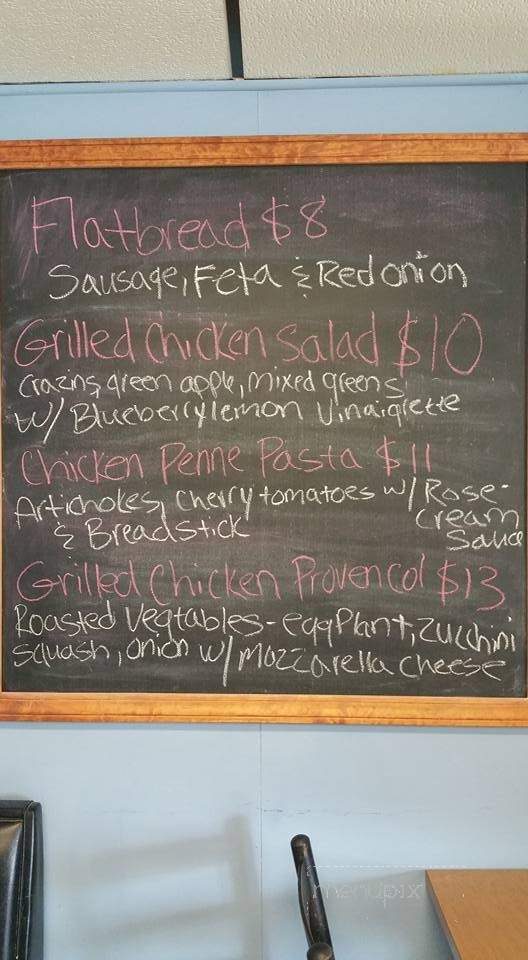 Flatbread $8
Sausage, Feta & Red onion
Grilled Chicken Salad $10
crazins, green apple, mixed greens
w/ Blueberry lemon Vinaigrette
Chicken Penne Pasta $11
Artichokes, cherry tomatoes w/ Rose-
cream
& Breadstick
Sauce
Grilled Chicken Provencol $13
Roasted Vegtables - eggplant, zucchini
squash, onion w/ mozzarella cheese
menupix